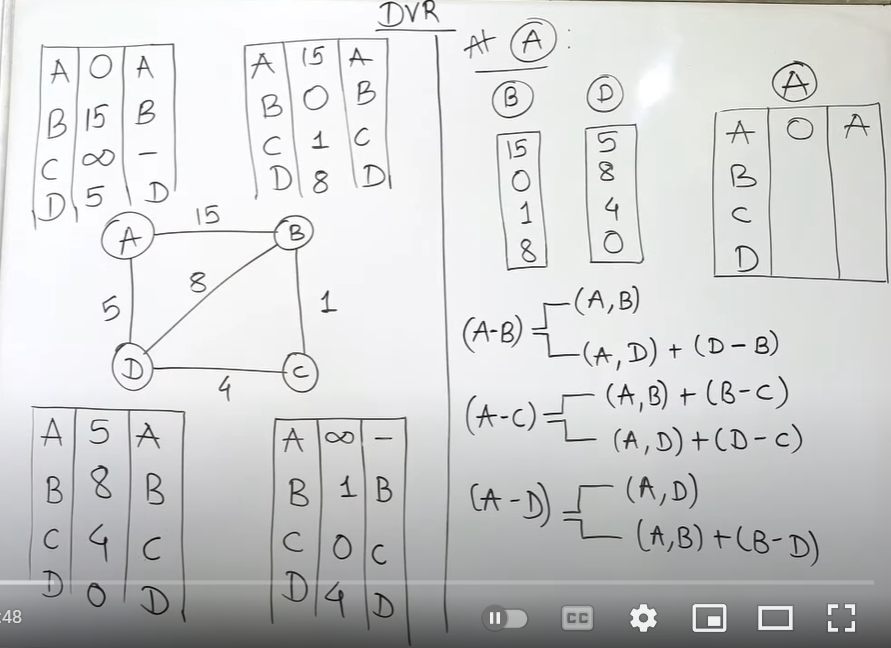 DVR
A 0 A
B 15 B
C ∞ –
D 5 D
A 15 A
B 0 B
C 1 C
D 8 D
A
B
C
D
15
8
5
1
4
A 5 A
B 8 B
C 4 C
D 0 D
A ∞ –
B 1 B
C 0 C
D 4 D
At A :
B D
15 5
0 8
1 4
8 0
A
A 0 A
B
C
D
(A-B) (A,B)
(A,D) + (D-B)
(A-C) (A,B) + (B-C)
(A,D)+(D-C)
(A-D) (A,D)
(A,B)+(B-D)
:48
CC